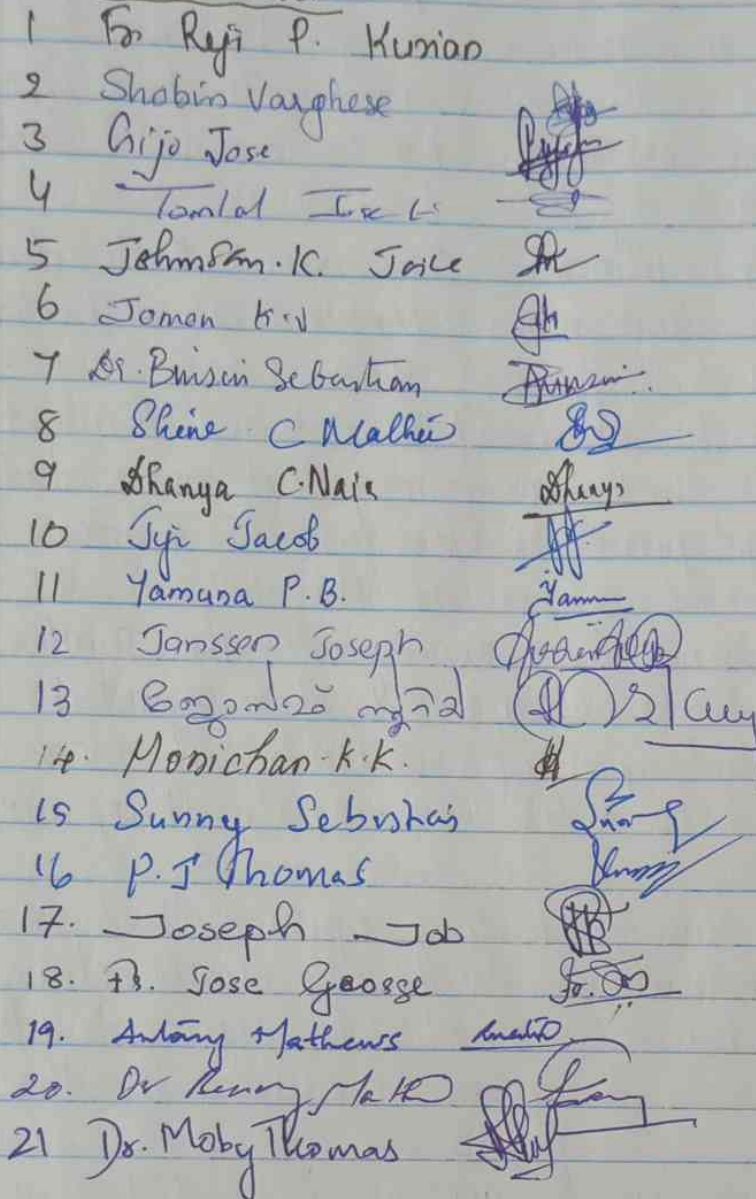 1 Fr. Reji P. Kurian
2 Shobin Varghese
3 Gijo Jose
4 Tomlal
5 Johnson. K. Joice
6 Jomon K.V
7 Dr. Binsin Sebastian Binsin
8 Shine C Mathew
9 Dhanya C. Nair Dhanya
10 Jiji Jacob
11 Yamuna P.B. Yamu
12 Janssen Joseph
13
14. Monichan. K.K.
15 Sunny Sebastian
16 P.J Thomas
17. Joseph Job
18. Fr. Jose George Fr.
19. Antony Mathews
20. Dr
21 Dr. Moby Thomas